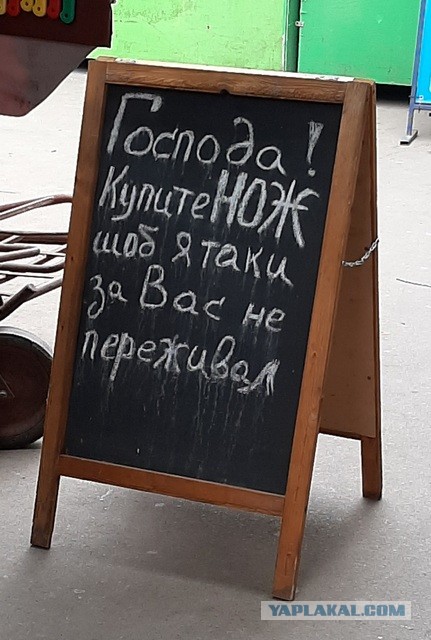 Господа!
Купите НОЖ
шоб я таки
за Вас не
переживал
YAPLAKAL.COM